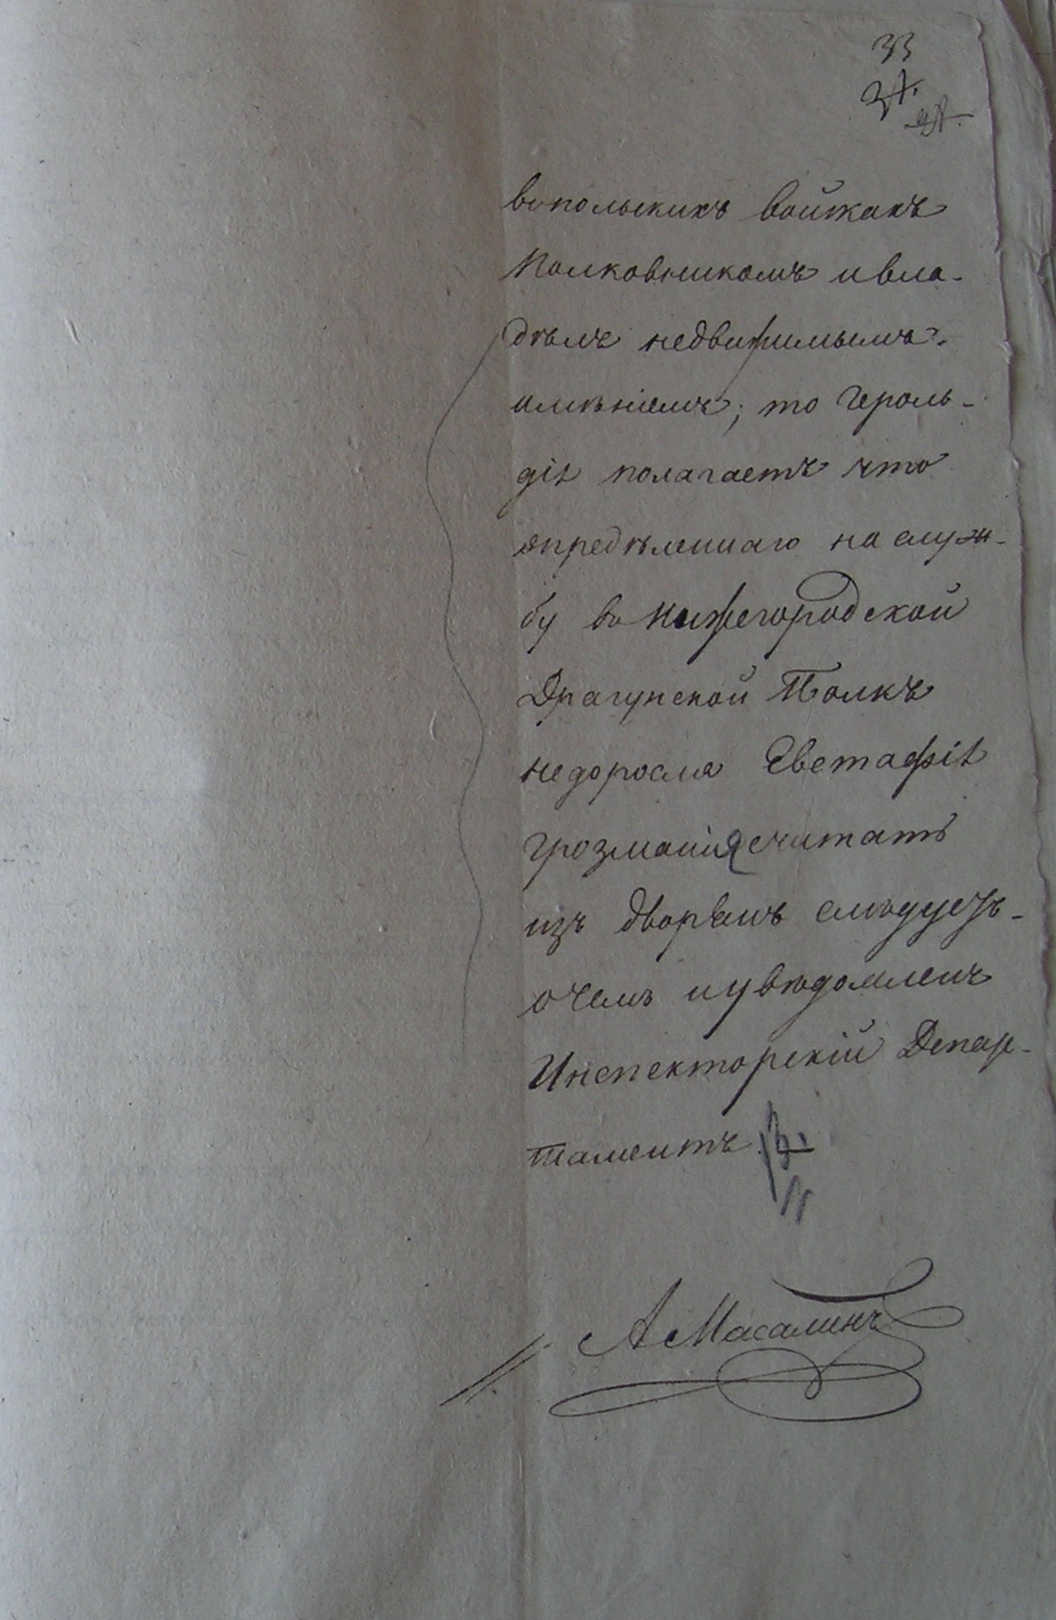 33
34.
вопольскихъ войскахъ
Полковникомъ ивла-
дѣлъ недвижимымъ
имѣніемъ; то Героль-
дія полагаетъ что
опредѣленнаго на служ-
бу во Нижегородской
Драгунской Полкъ
недоросля Евстафія
Грозмани считать
изъ дворянъ слѣдуетъ-
очемъ иувѣдомленъ
Инспекторскій Депар-
таментъ.
А Масалинъ